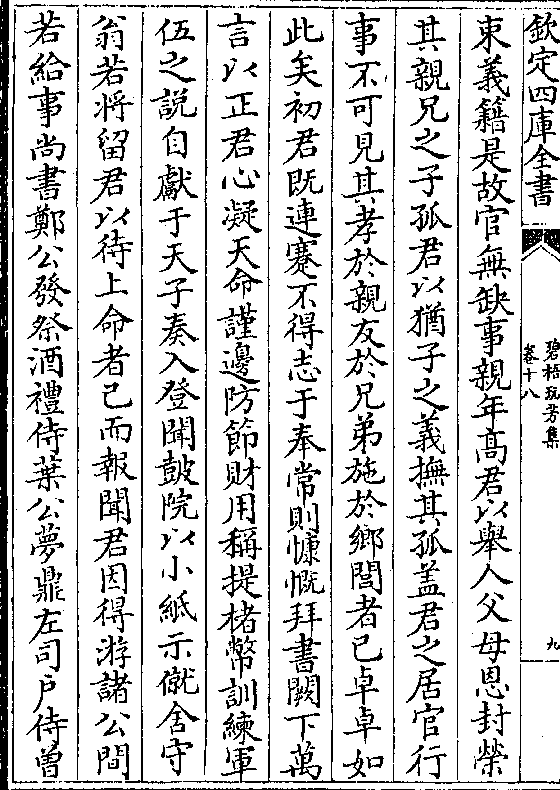 欽定四庫全書
碧梧玩芳集
卷十八
九
束義籍是故官無缺事親年高君以舉人父母恩封榮
其親兄之子孤君以猶子之義撫其孤盖君之居官行
事不可見其孝於親友於兄弟施於鄉閭者已卓卓如
此矣初君既連蹇不得志于奉常則慷慨拜書闕下萬
言以正君心凝天命謹邊防節財用稱提楮幣訓練軍
伍之説自獻于天子奏入登聞鼓院以小紙示僦舍守
翁若將留君以待上命者已而報聞君因得游諸公間
若給事尚書鄭公發祭酒禮侍葉公夢鼎左司戶侍曾